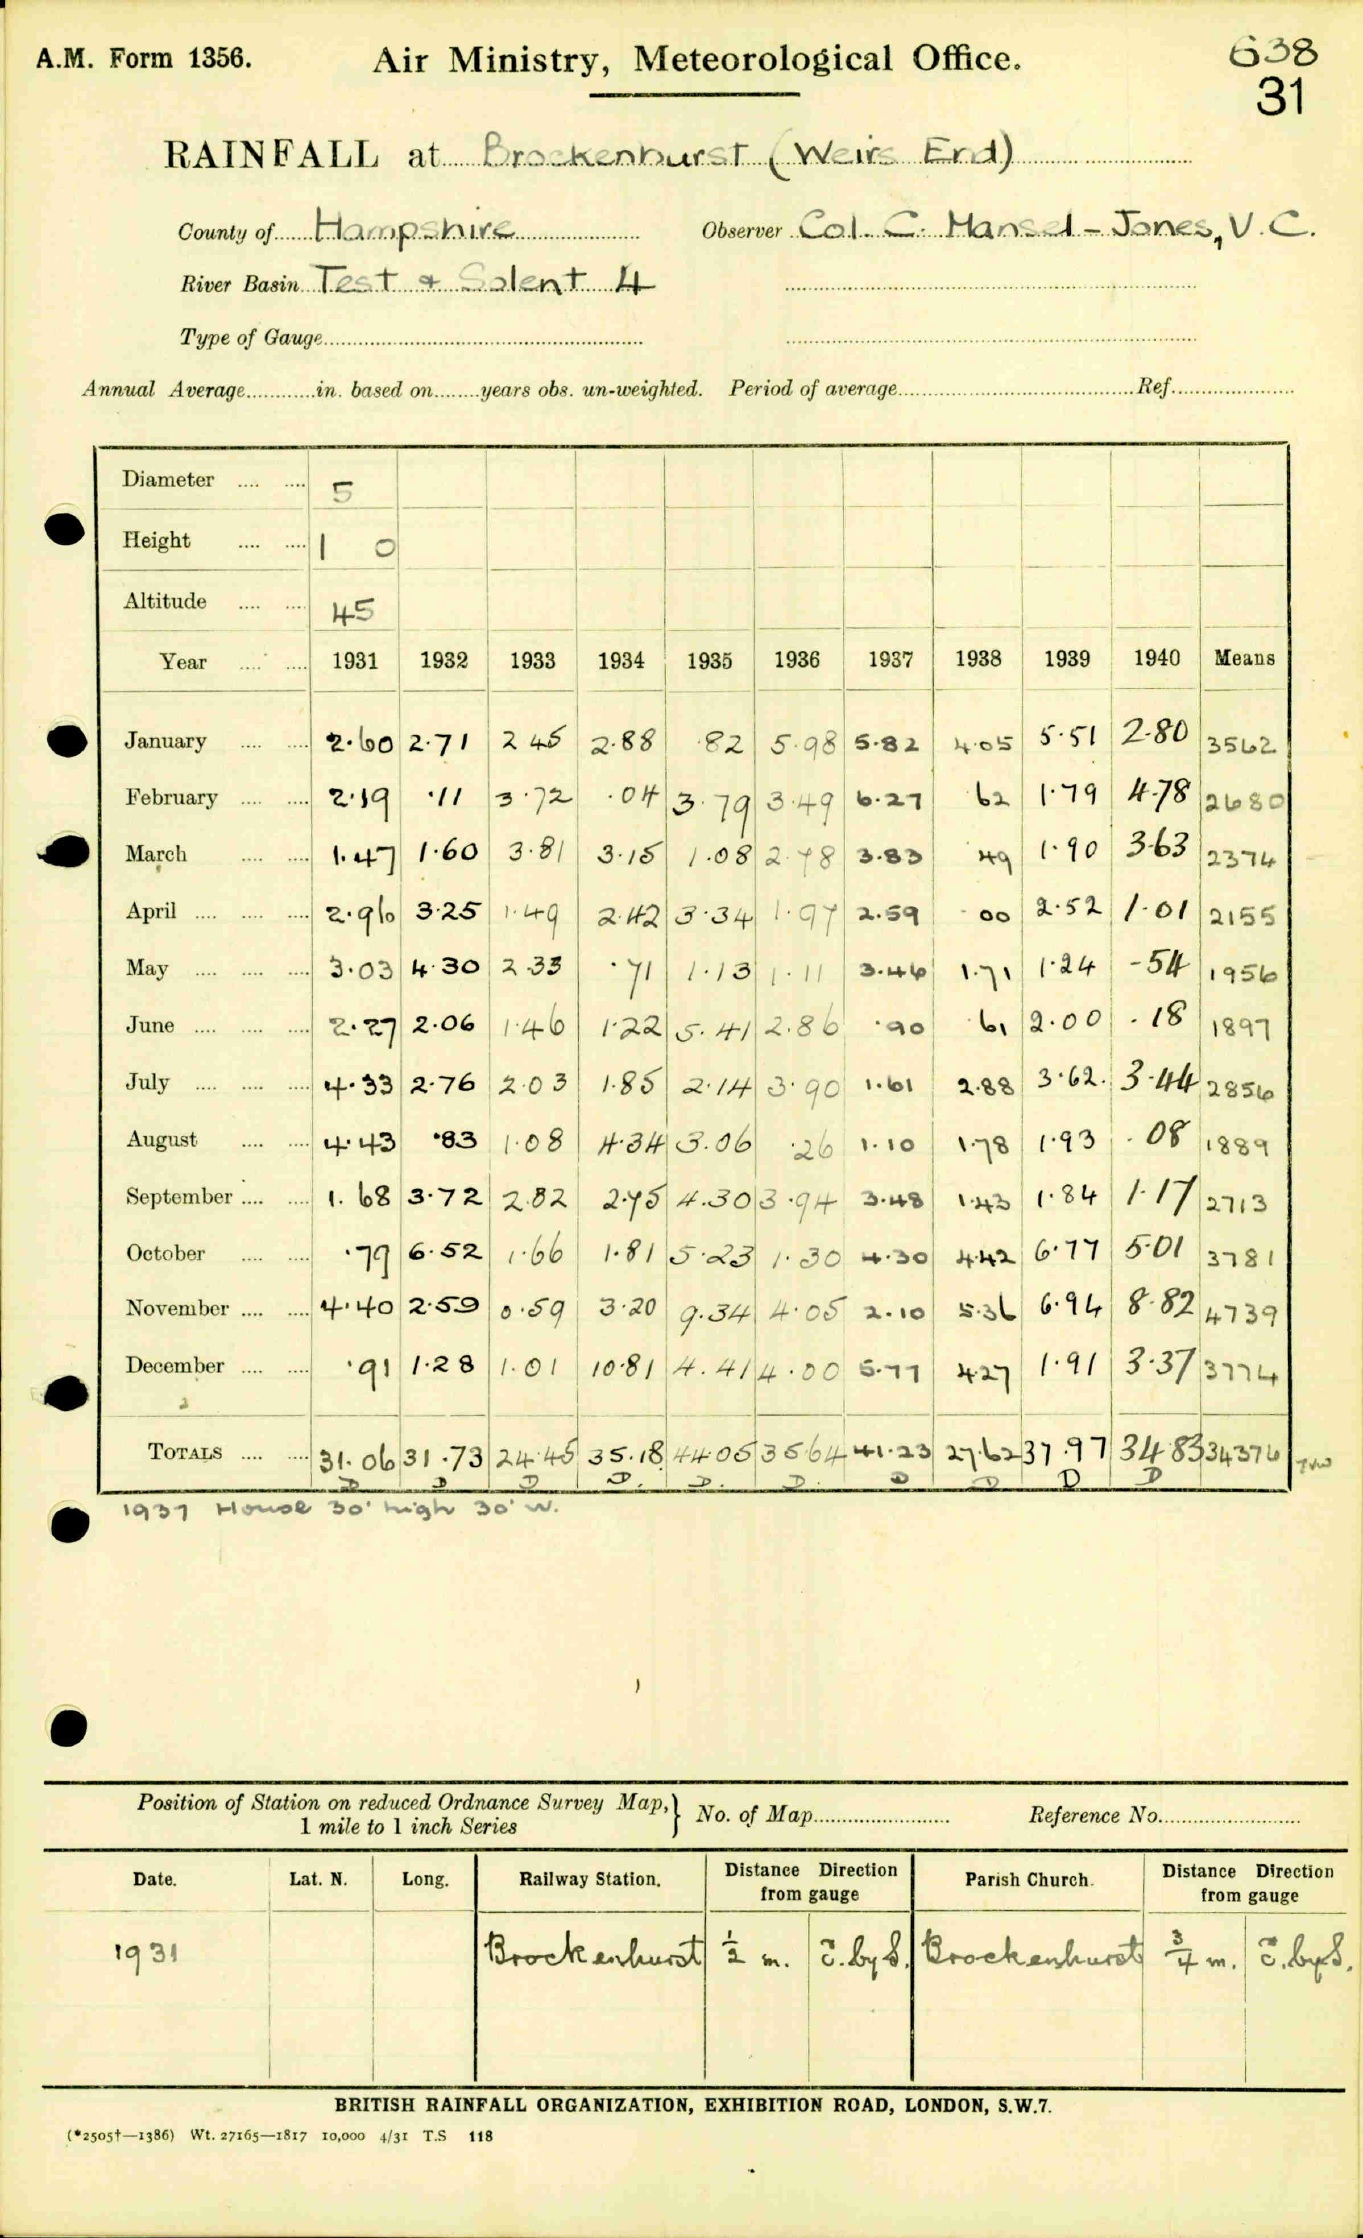 A.M. Form 1356. Air Ministry, Meteorological Office. 638
31
RAINFALL at Brockenhurst (Weirs End)
County of Hampshire Observer Col. C. Mansel-Jones, V.C.
River Basin Test + Solent 4
Type of Gauge
Annual Average in. based on years obs. un-weighted. Period of average Ref.
Diameter 5
Height 1 0
Altitude 45
Year 1931 1932 1933 1934 1935 1936 1937 1938 1939 1940 Means
January 2.60 2.71 2 45 2.88 .82 5.98 5.82 4.05 5.51 2.80 3562
February 2.19 .11 3.72 .04 3.79 3.49 6.27 62 1.79 4.78 2680
March 1.47 1.60 3.81 3.15 1.08 2.78 3.83 49 1.90 3.63 2374
April 2.96 3.25 1.49 2.42 3.34 1.97 2.59 00 2.52 1.01 2155
May 3.03 4.30 2.33 .71 1.13 1.11 3.46 1.71 1.24 -54 1956
June 2.27 2.06 1.46 1.22 5.41 2.86 .90 .61 2.00 .18 1897
July 4.33 2.76 2.03 1.85 2.14 3.90 1.61 2.88 3.62. 3.44 2856
August 4.43 .83 1.08 4.34 3.06 .26 1.10 1.78 1.93 .08 1889
September 1.68 3.72 2.82 2.75 4.30 3.94 3.48 1.43 1.84 1.17 2713
October .79 6.52 1.66 1.81 5.23 1.30 4.30 4.42 6.77 5.01 3781
November 4.40 2.59 0.59 3.20 9.34 4.05 2.10 5.36 6.94 8.82 4739
December .91 1.28 1.01 10.81 4.41 4.00 5.77 4.27 1.91 3.37 3774
TOTALS 31.06 31.73 24.45 35.18 44.05 35.64 41.23 27.62 37.97 34.83 34376
D D D D. D. D. D D D D
1937 House 30' high 30' W.
Position of Station on reduced Ordnance Survey Map,} No. of Map Reference No.
1 mile to 1 inch Series
Date. Lat. N. Long. Railway Station. Distance Direction from gauge Parish Church. Distance Direction from gauge
1931 Brockenhurst ½ m. E. by S. Brockenhurst ¾ m. E. by S.
BRITISH RAINFALL ORGANIZATION, EXHIBITION ROAD, LONDON, S.W.7.
(*2505†—1386) Wt. 27165—1817 10,000 4/31 T.S 118